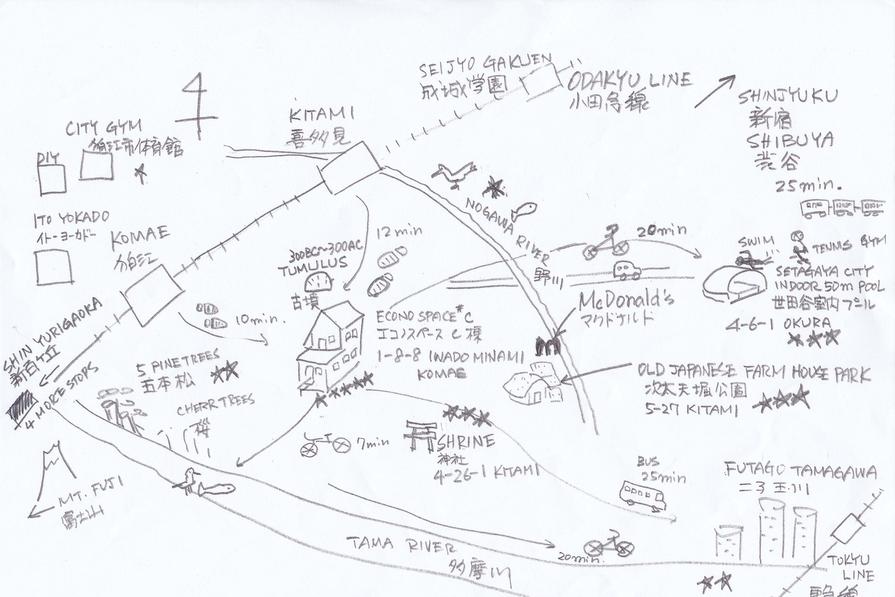 SEIJYO GAKUEN
成城学園
ODAKYU LINE
小田急線
SHINJYUKU
新宿
SHIBUYA
渋谷
25min.
KITAMI
喜多見
CITY GYM
狛江市体育館
DIY
ITO YOKADO
イトーヨーカドー
KOMAE
狛江
NOGAWA RIVER
野川
12min
10min.
300BC~300AC
TUMULUS
古墳
20min
SWIM
TENNIS GYM
SETAGAYA CITY
INDOOR 50m POOL
世田谷室内プール
4-6-1 OKURA
McDonald's
マクドナルド
ECONO SPACE "C
エコノスペース C棟
1-8-8 IWADO MINAMI
KOMAE
OLD JAPANESE FARM HOUSE PARK
次太夫堀公園
5-27 KITAMI
SHIN YURIGAOKA
新百合ヶ丘
4 MORE STOPS
5 PINE TREES
五本松
CHERR TREES
桜
7min
SHRINE
神社
4-26-1 KITAMI
BUS
25min
FUTAGO TAMAGAWA
二子玉川
MT. FUJI
富士山
TAMA RIVER
多摩川
20min.
TOKYU
LINE